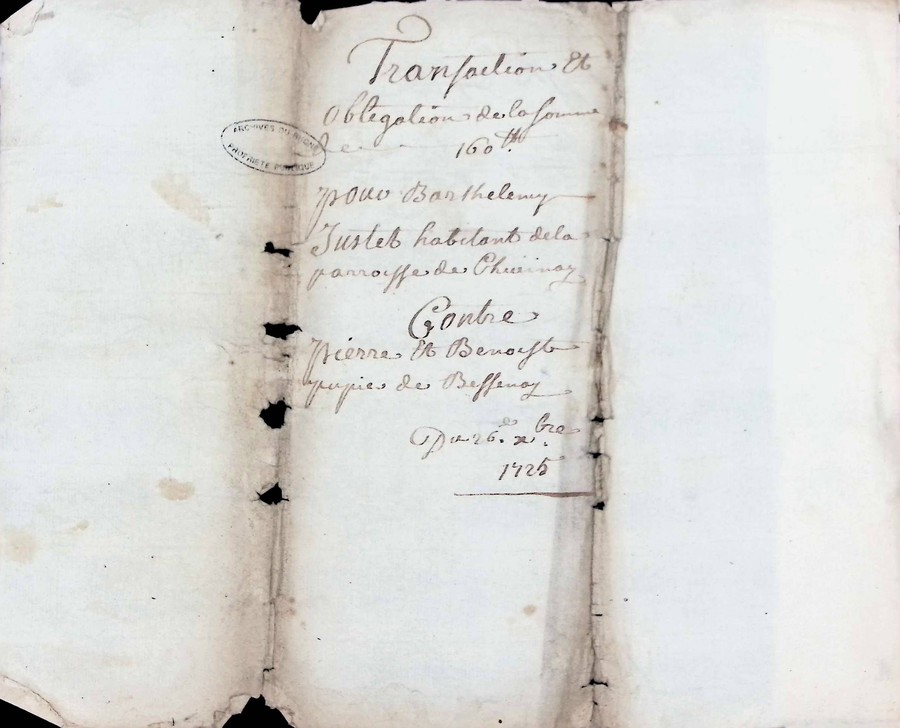 Transaction Et
obligation de la somme
de 160 tt
ARCHIVES DU RHONE
PROPRIÉTÉ PUBLIQUE
pour Barthelemy
Justet habitant de la
parroisse de Chevinay
Contre
pierre Et Benoist
pupier de Bessenay
Du 26e xbre
1725